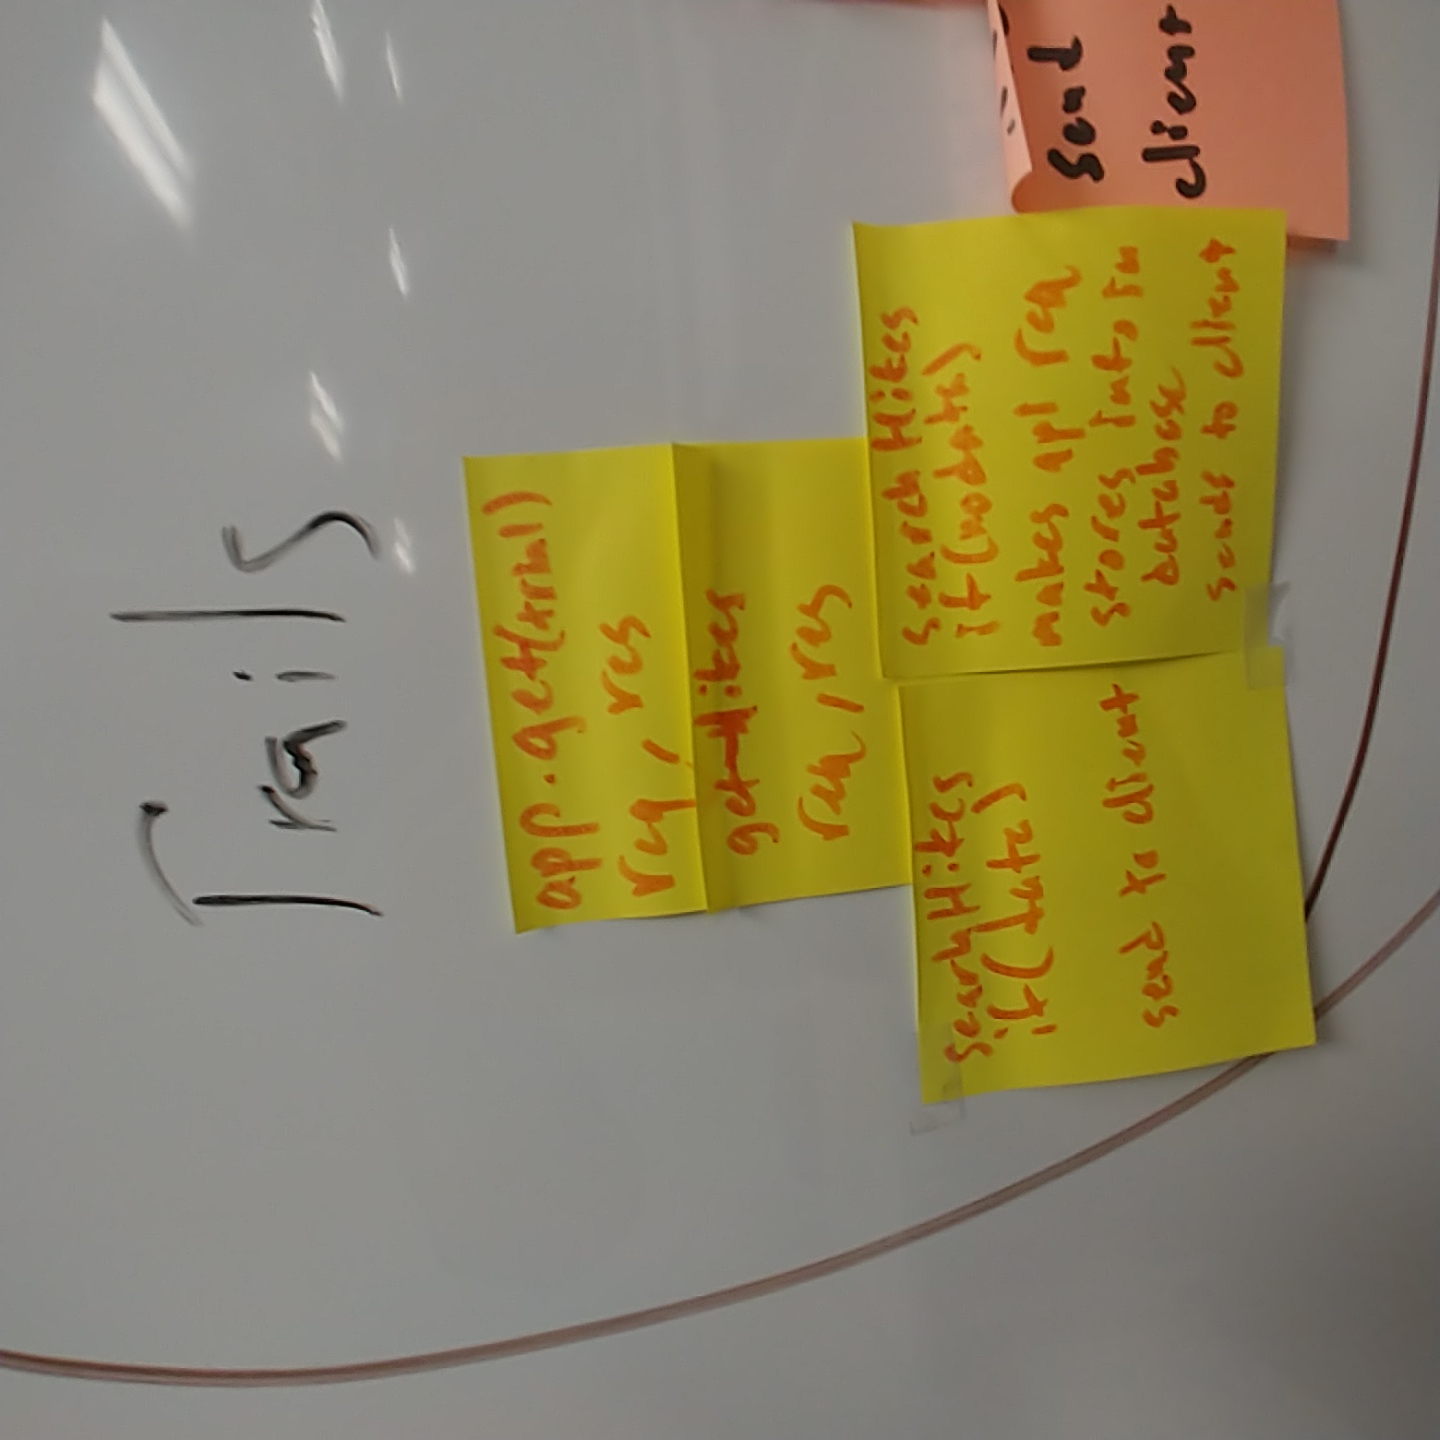 Trails
app.get(trial)
req, res
getHikes
req, res
searchHikes
if(data)
send to client
searchHikes
if(nodata)
makes api req
stores info in
database
sends to client
send
client